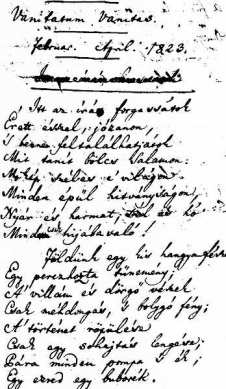 Vanitatum Vanitas.
Februar. April. 1823.
Itt az írás forgassátok
Érett ésszel, józanon,
S benne feltalálhatjátok
Mit tanít bölcs Salamon:
Mikép széles e világon
Minden épűl hitványságon,
Nyár és harmat, tél és hó
Mind csak hijábavaló!
Földünk egy kis hangyafészek
Egy perczentő tünemény;
A' villám és dörgő vészek
Csak méhdongás, 's bolygó fény;
A' történet röpülése
Csak egy sóhajtás lengése;
Pára minden pompa 's ék;
Egy ezred egy buborék.